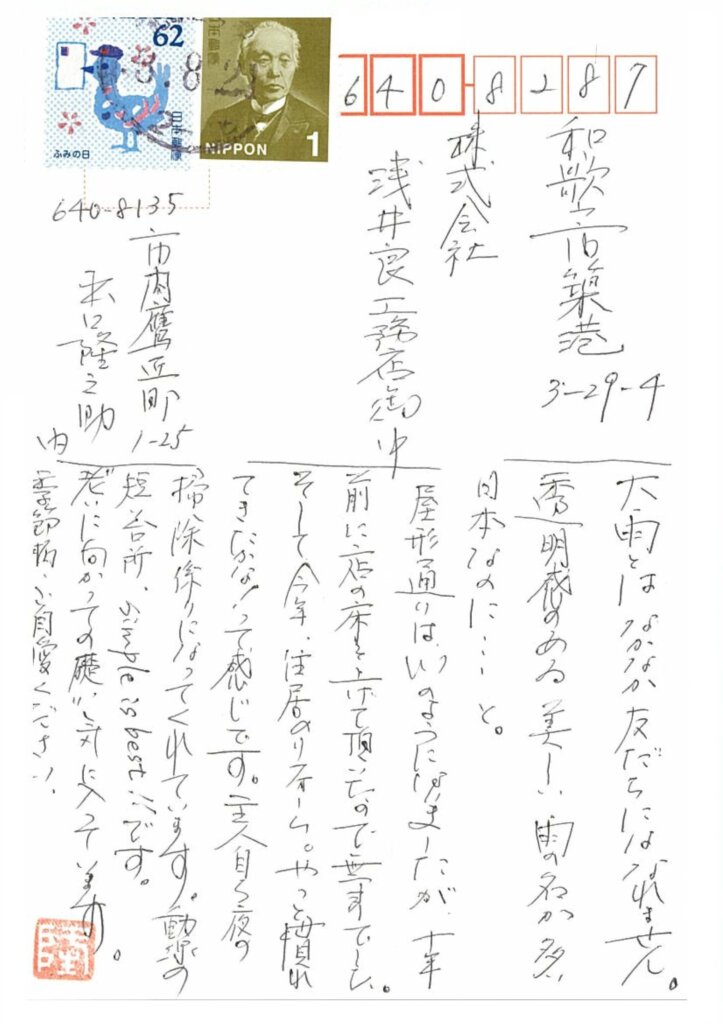 62
日本郵便
ふみの日
日本郵便
NIPPON 1
640-8287
和歌山市築港
3-29-4
株式会社
浅井良工務店御中
640-8135
市内鷹匠町
1-25
隆之助
内
大雨とはなかなか友だちになれません。
透明感のある美しい雨の名が多い
日本なのに…と。
屋形通りは、いつものようになりましたが、十年
前に店の床を上げて頂いたので無事でした。
そして今年、住居のリフォーム。やっと慣れ
てきたかなって感じです。主人自ら夜の
掃除係りになってくれています。動線の
短い台所、simple is bestです。
老いに向かっての礎、気に入っています。
季節柄ご自愛ください。
隆